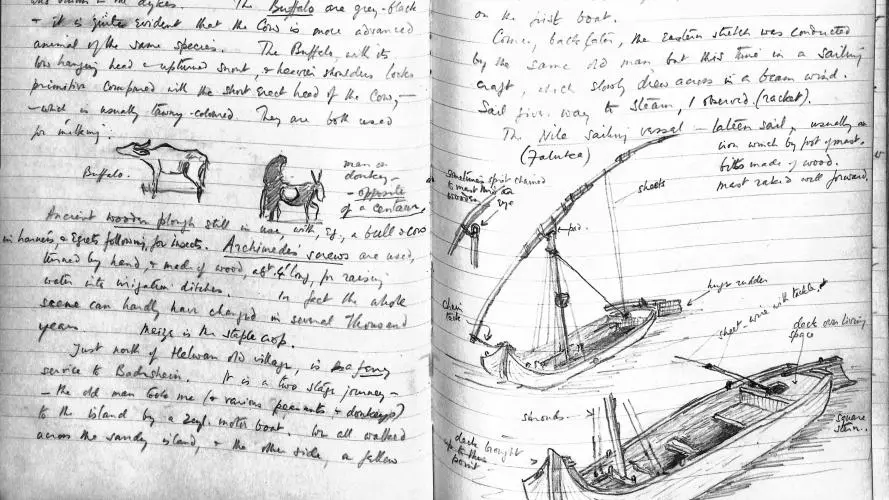 The Buffalo are grey-black
- it is quite evident that the Cow is more advanced
animal of the same species. The Buffalo, with its
low hanging head & upturned snout, & heavier shoulders looks
primitive compared with the short erect head of the Cow, -
- which is usually tawny-coloured. They are both used
for milking:
Buffalo.
man on
donkey -
- opposite
of a centaur,
Ancient wooden plough still in use, with, eg, a bull & cow
in harness, & Egrets following, for insects. Archimedes' screws are used,
turned by hand, & made of wood, abt. 4' long, for raising
water into irrigation ditches. In fact the whole
scene can hardly have changed in several Thousand
years. Maize is the staple crop.
Just north of Helwan old village, is a ferry
service to Badrshein. It is a two stage journey -
- the old man took me (& various peasants & donkeys)
to the island by a motor boat. We all walked
across the sandy island, & the other side, a fellow
on the first boat.
Coming back later, the Eastern stretch was conducted
by the same old man but this time in a sailing
craft, which slowly drew across in a beam wind.
Sail gives way to steam, I observed. (racket).
The Nile sailing vessel - lateen sail, usually on
(Falukca)
iron which by foot of mast.
bitts made of wood.
mast raked well forward.
sometimes sprit chained
to mast thro' an
wooden eye
sheets
pad.
chain
tack
huge rudder
sheet - wire with tackle
deck over living
space
shrouds
deck brought
up to this
point
square
stern.